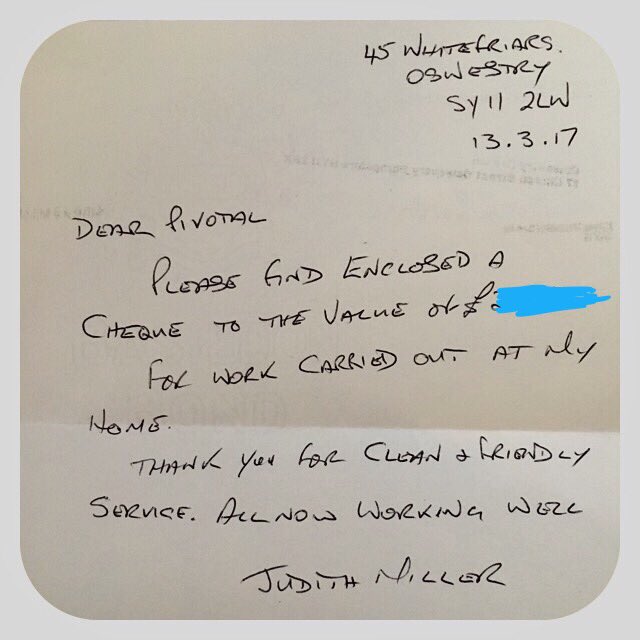 45 WHITEFRIARS.
OSWESTRY
SY11 2LW
13.3.17
DEAR PIVOTAL
PLEASE FIND ENCLOSED A
CHEQUE TO THE VALUE OF £
FOR WORK CARRIED OUT AT MY
HOME.
THANK YOU FOR CLEAN & FRIENDLY
SERVICE. ALL NOW WORKING WELL
JUDITH MILLER